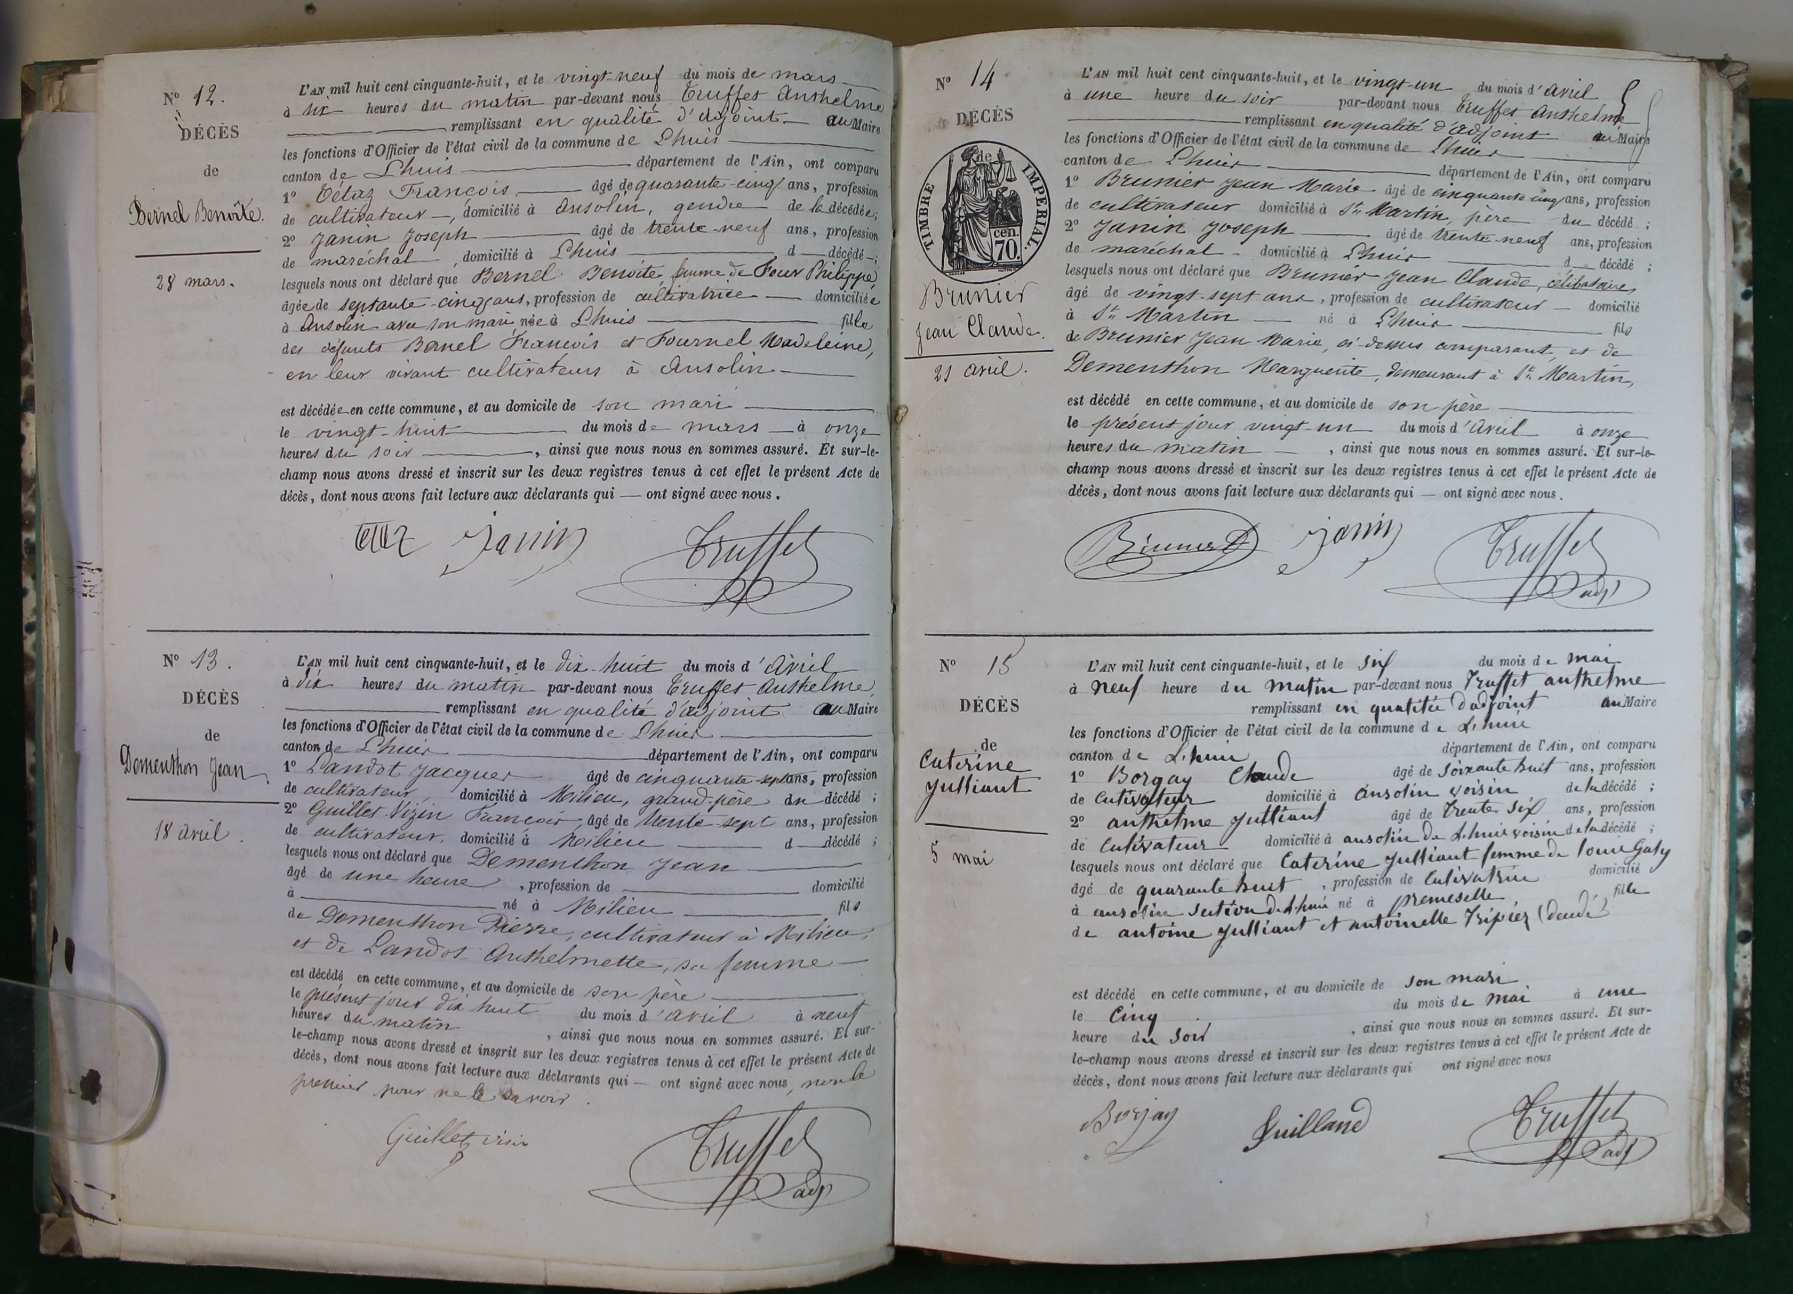 N° 12.
DÉCÈS
de
Bernel Benoîte.
28 mars.
L'AN mil huit cent cinquante-huit, et le vingt-neuf du mois de mars
à six heures du matin par-devant nous Truffet Anthelme
remplissant en qualité d'adjoint au Maire
les fonctions d'Officier de l'état civil de la commune de Lhuis
canton de Lhuis département de l'Ain, ont comparu
1° Tétaz François âgé de quarante-cinq ans, profession
de cultivateur, domicilié à Ansolin, gendre de la décédée;
2° Janin Joseph âgé de trente-neuf ans, profession
de maréchal, domicilié à Lhuis d décédé;
lesquels nous ont déclaré que Bernel Benoîte, femme de Four Philippe
âgée de septante-cinq ans, profession de cultivatrice domiciliée
à Ansolin avec son mari, née à Lhuis fille
des défunts Bernel François et Fournel Madeleine,
en leur vivant cultivateurs à Ansolin
est décédée en cette commune, et au domicile de son mari
le vingt-huit du mois de mars à onze
heures du soir, ainsi que nous nous en sommes assuré. Et sur-le-
champ nous avons dressé et inscrit sur les deux registres tenus à cet effet le présent Acte de
décès, dont nous avons fait lecture aux déclarants qui — ont signé avec nous.
Janin Truffet
N° 13.
DÉCÈS
de
Dementhon Jean
18 avril.
L'AN mil huit cent cinquante-huit, et le dix-huit du mois d'Avril
à dix heures du matin par-devant nous Truffet Anthelme,
remplissant en qualité d'adjoint au Maire
les fonctions d'Officier de l'état civil de la commune de Lhuis
canton de Lhuis département de l'Ain, ont comparu
1° Landot Jacques âgé de cinquante-sept ans, profession
de cultivateur, domicilié à Milieu, grand-père du décédé;
2° Guillet Vizin François, âgé de trente-sept ans, profession
de cultivateur, domicilié à Milieu d décédé;
lesquels nous ont déclaré que Dementhon Jean
âgé de une heure, profession de domicilié
à né à Milieu fils
de Dementhon Pierre, cultivateur à Milieu,
et de Landot Anthelmette, sa femme
est décédé en cette commune, et au domicile de son père
le présent jour dix-huit du mois d'avril à neuf
heures du matin, ainsi que nous nous en sommes assuré. Et sur-
le-champ nous avons dressé et inscrit sur les deux registres tenus à cet effet le présent Acte de
décès, dont nous avons fait lecture aux déclarants qui — ont signé avec nous, non le
premier pour ne le savoir.
Guillet visin Truffet adj
N° 14
DÉCÈS
de
TIMBRE IMPÉRIAL
70 cen.
Brunier
Jean Claude.
21 avril.
L'AN mil huit cent cinquante-huit, et le vingt-un du mois d'avril
à une heure du soir par-devant nous Truffet Anthelme
remplissant en qualité d'adjoint au Maire
les fonctions d'Officier de l'état civil de la commune de Lhuis
canton de Lhuis département de l'Ain, ont comparu
1° Brunier Jean Marie âgé de cinquante cinq ans, profession
de cultivateur domicilié à St. Martin, père du décédé;
2° Janin Joseph âgé de trente-neuf ans, profession
de maréchal domicilié à Lhuis d décédé;
lesquels nous ont déclaré que Brunier Jean Claude, célibataire,
âgé de vingt-sept ans, profession de cultivateur domicilié
à St. Martin né à Lhuis fils
de Brunier Jean Marie, ci-dessus comparant, et de
Dementhon Marguerite, demeurant à St. Martin,
est décédé en cette commune, et au domicile de son père
le présent jour vingt-un du mois d'avril à onze
heures du matin, ainsi que nous nous en sommes assuré. Et sur-le-
champ nous avons dressé et inscrit sur les deux registres tenus à cet effet le présent Acte de
décès, dont nous avons fait lecture aux déclarants qui — ont signé avec nous.
Brunier Janin Truffet adj
N° 15
DÉCÈS
de
Caterine
Julliant
5 mai
L'AN mil huit cent cinquante-huit, et le six du mois de mai
à neuf heure du matin par-devant nous Truffet anthelme
remplissant en qualitée d'adjoint au Maire
les fonctions d'Officier de l'état civil de la commune de Lhuis
canton de Lhuis département de l'Ain, ont comparu
1° Borgay Claude âgé de soixante huit ans, profession
de Cultivateur domicilié à ansolin voisin de la décédé;
2° anthelme Julliant âgé de trente six ans, profession
de Cultivateur domicilié à ansolin de Lhuis voisin de la décédé;
lesquels nous ont déclaré que Caterine Julliant femme de louis Gaty
âgé de quarante huit, profession de Cultivatrice domicilié
à ansolin section de Lhuis né à premeselle fille
de antoine Julliant et antoinelle Tripier (décédé)
est décédé en cette commune, et au domicile de son mari
le cinq du mois de mai à une
heure du soir, ainsi que nous nous en sommes assuré. Et sur-
le-champ nous avons dressé et inscrit sur les deux registres tenus à cet effet le présent Acte de
décès, dont nous avons fait lecture aux déclarants qui ont signé avec nous
Borjay Juilland Truffet adj